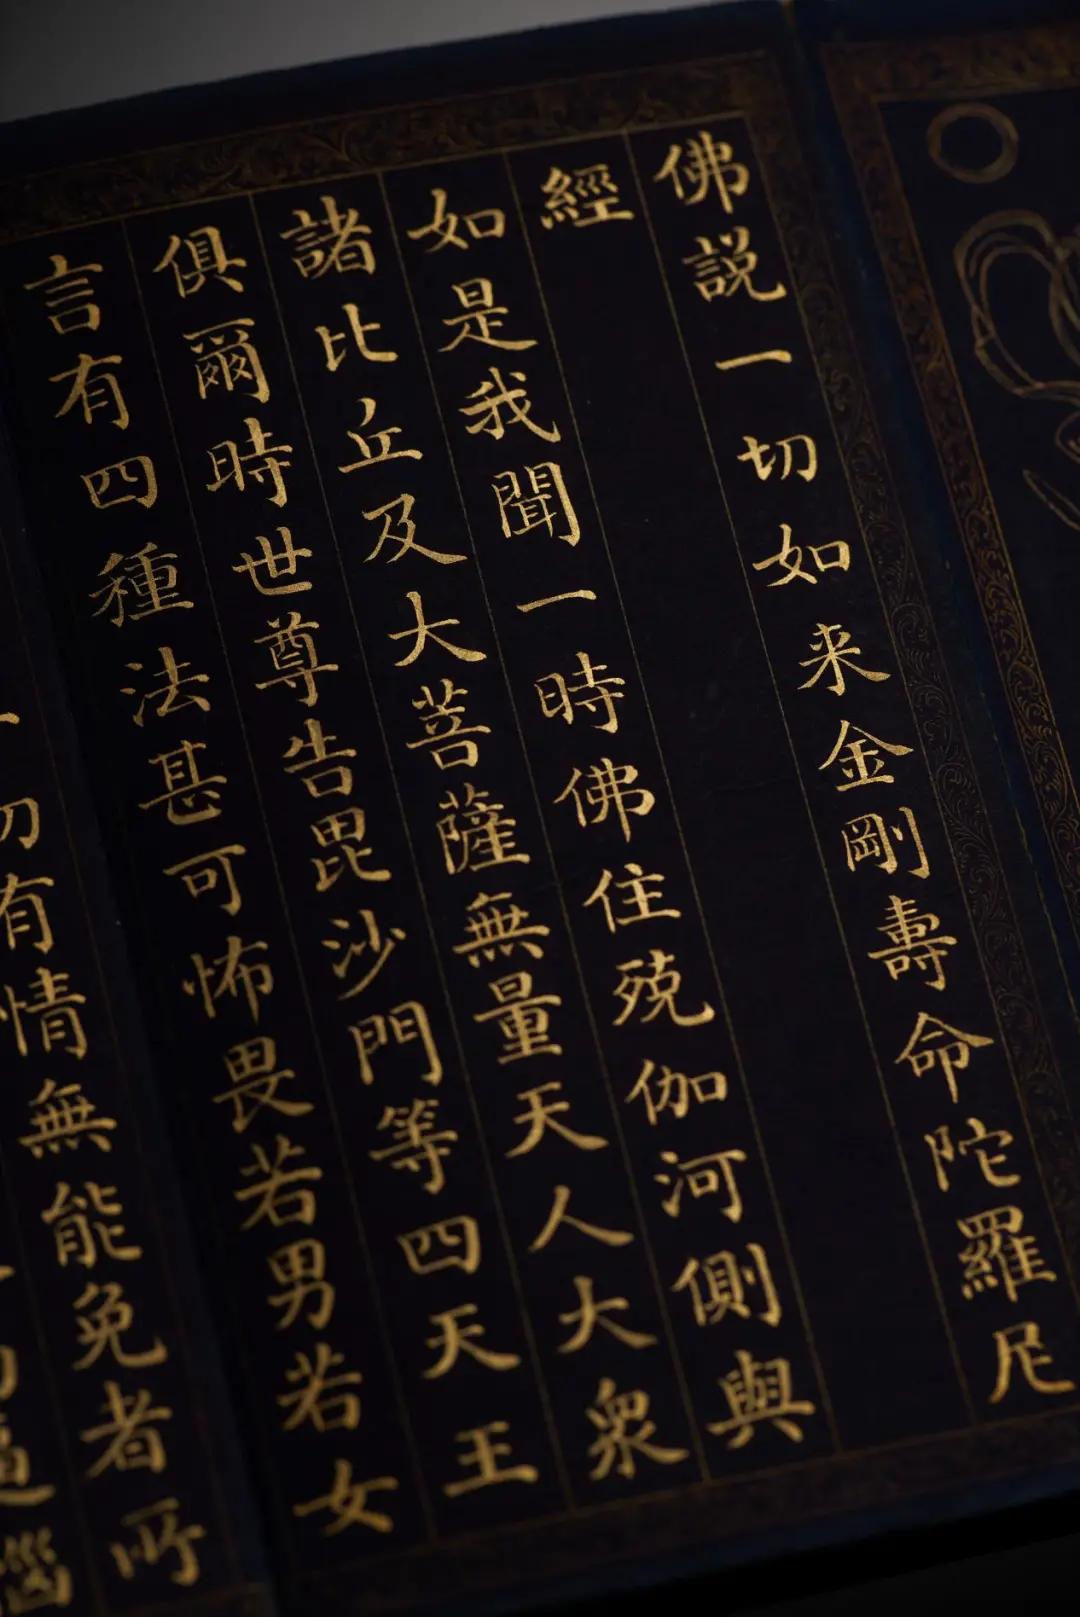 佛説一切如来金剛壽命陀羅尼
經
如是我聞一時佛住殑伽河側與
諸比丘及大菩薩無量天人大衆
俱爾時世尊告毘沙門等四天王
言有四種法甚可怖畏若男若女
一切有情無能免者所